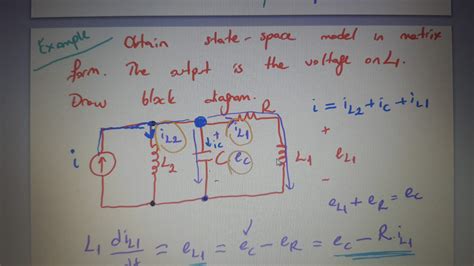 Example
Obtain state-space model in matrix
form. The output is the voltage on L1.
Draw block diagram.
R
i = iL2 + iC + iL1
iL2
iL1
+
ic
+
i
L2
C
eC
L1
eL1
-
-
eL1 + eR = eC
L1 diL1/dt = eL1 = eC - eR = eC - R.iL1